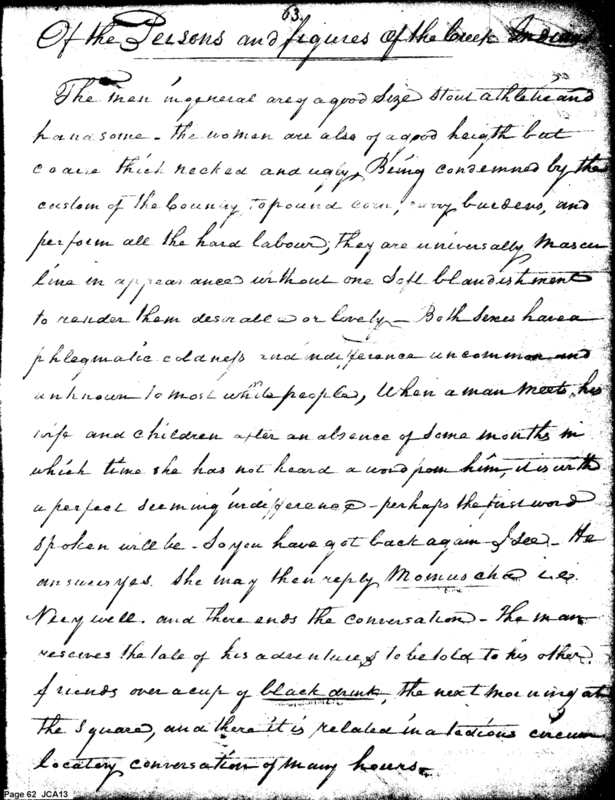 63.
Of the Persons and figures of the Creek Indians
The men in general are of a good Size stout athletic and
handsome - the women are also of a good heigth but
coarse thick necked and ugly, Being condemned by the
custom of the Country to pound corn, carry burdens, and
perform all the hard labour; they are universally mascu
line in appearance without one soft blandishment
to render them desirable or lovely - Both Sexes have a
phlegmatic coldness and indifference uncommon and
unknown to most white people, When a man meets his
wife and children after an absence of some months in
which time she has not heard a word from him, it is with
a perfect seeming indifference - perhaps the first word
spoken will be - So you have got back again I see - He
answers yes. She may then reply Momuscha i.e.
Very well. and there ends the conversation - The man
reserves the tale of his adventures to be told to his other
friends over a cup of black drink, the next morning at
the square, and there it is related in a tedious circum
locutory conversation of many hours.
Page 62 JCA13